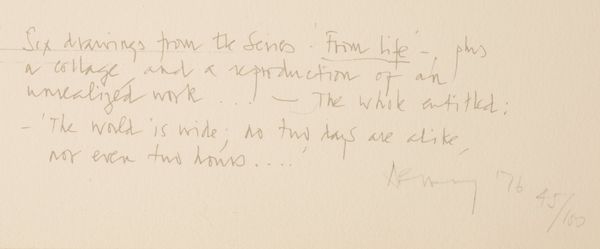 Six drawings from the Series 'From life' -, plus
a collage, and a reproduction of an
unrealized work ... — The whole entitled:
- 'The world is wide; no two days are alike,
nor even two hours ....'
'76 45/100